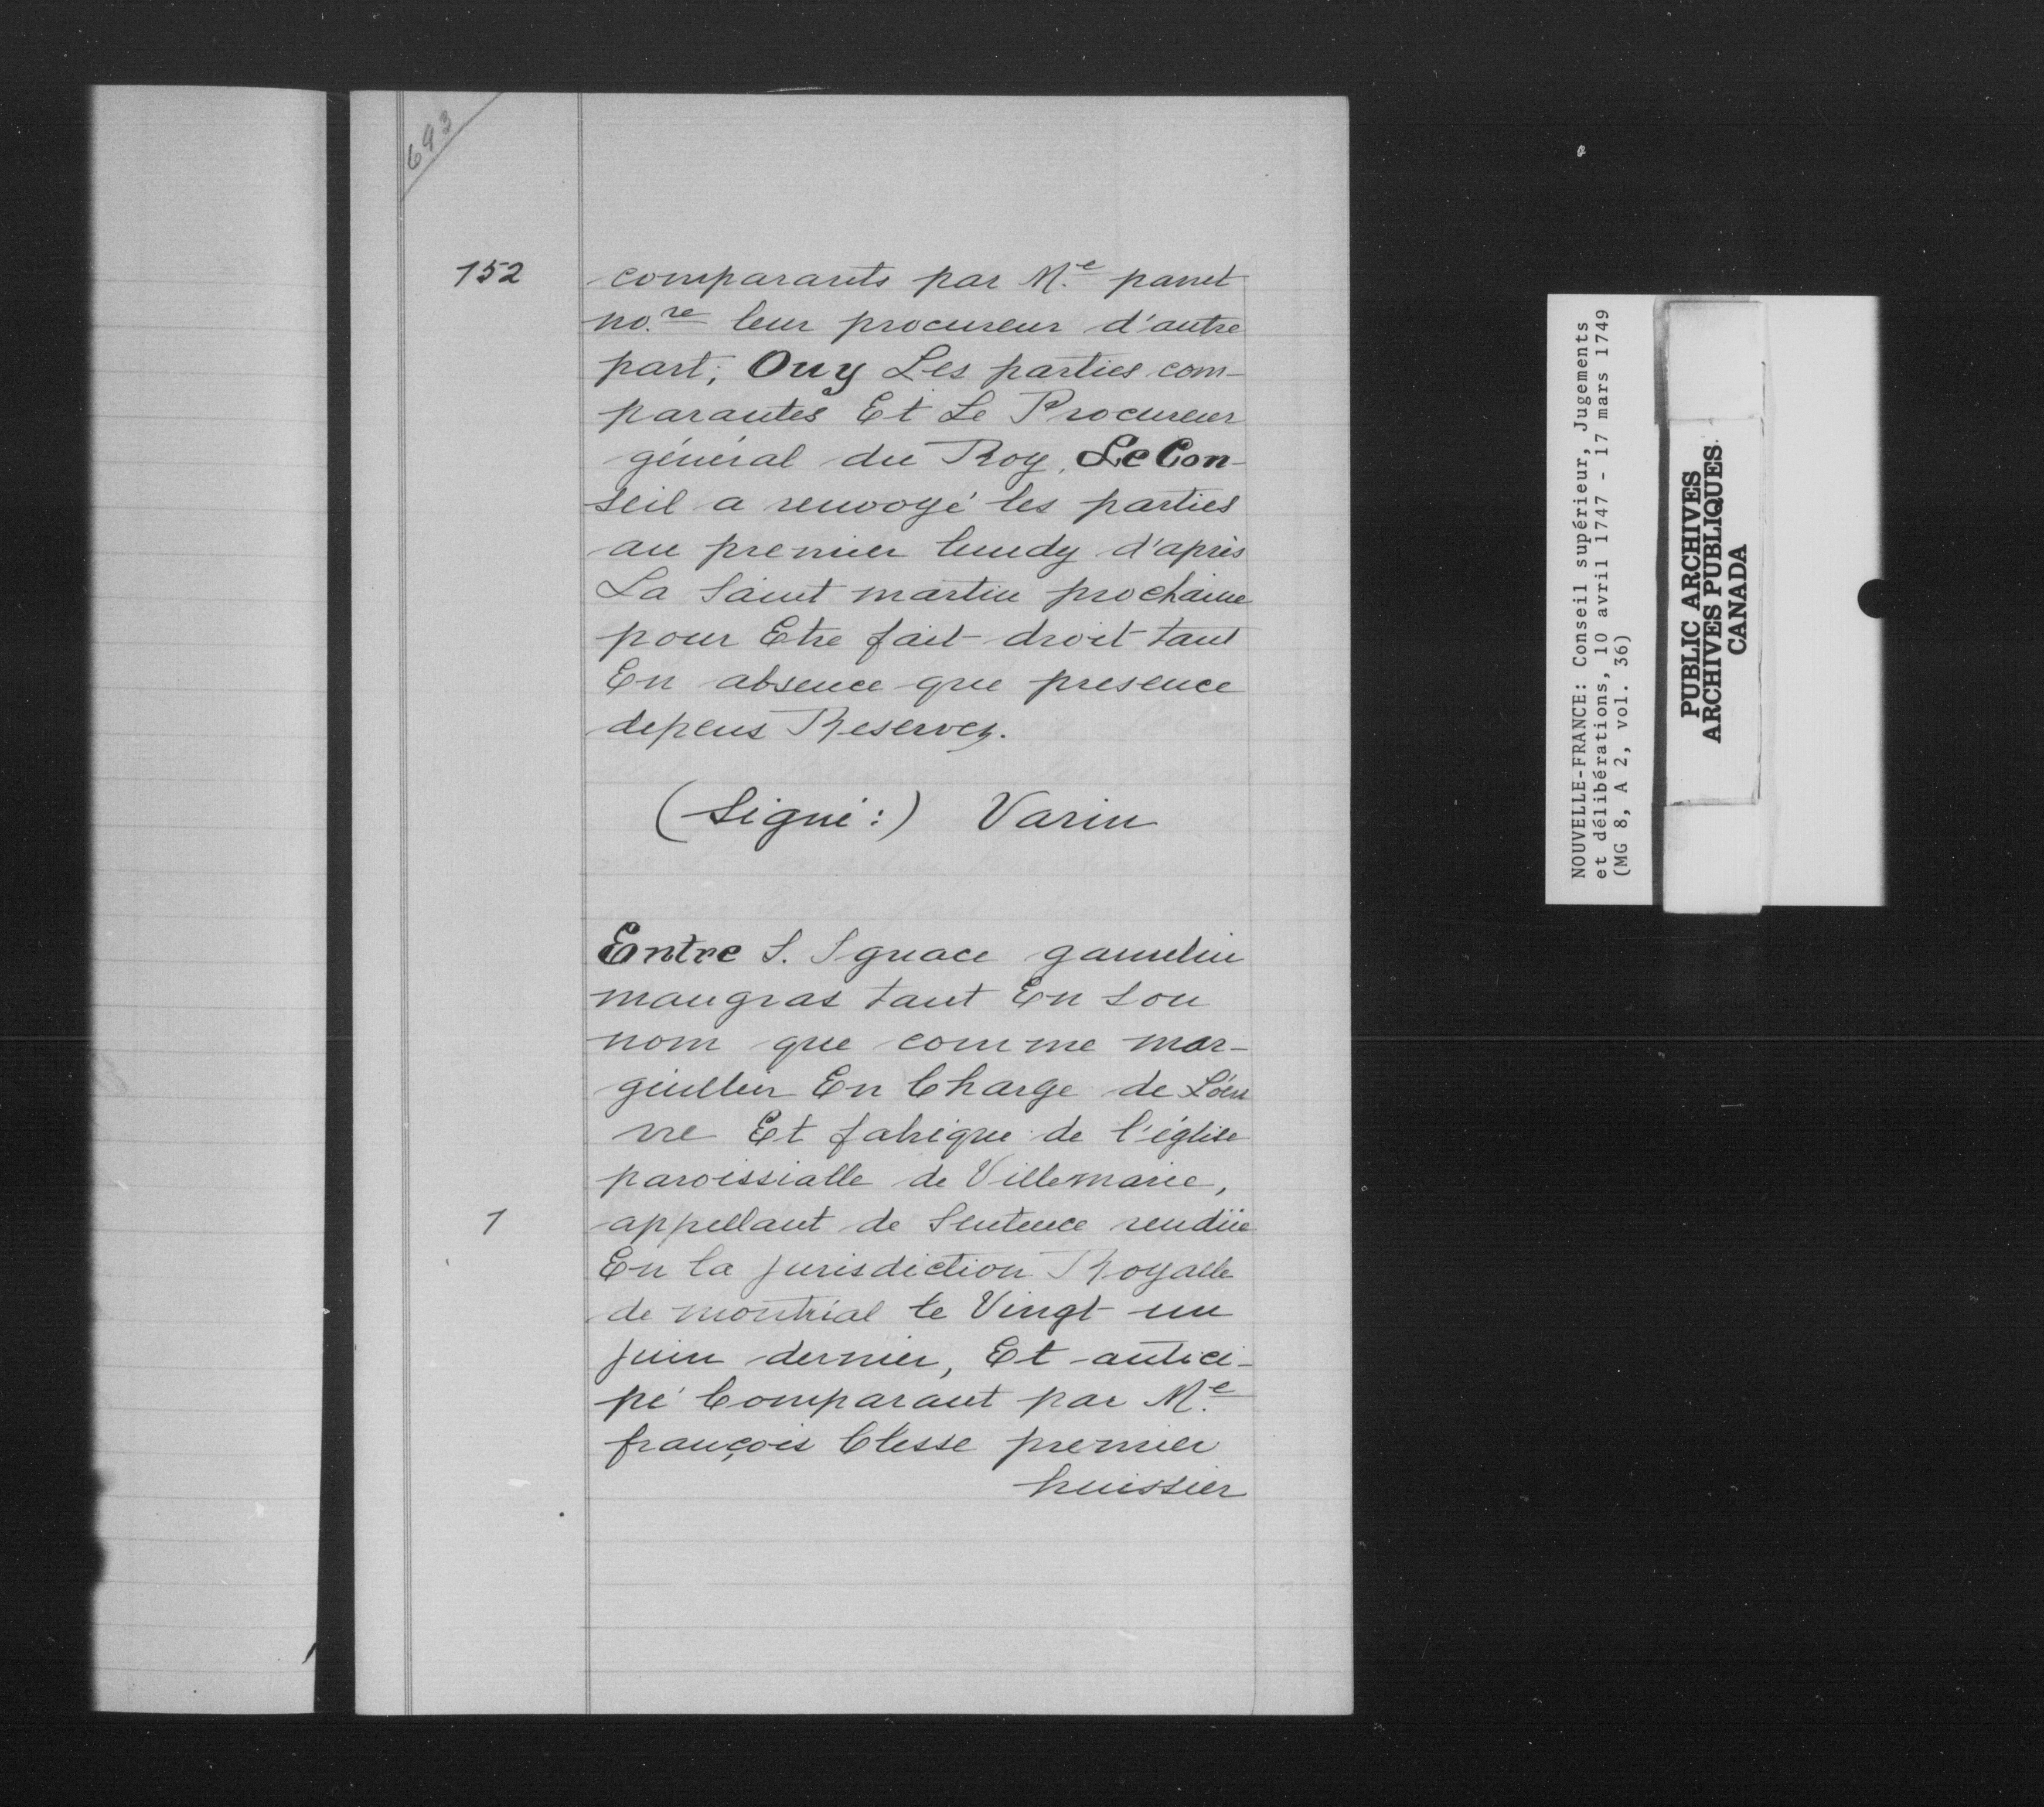 693
152
comparants par M.e panet
no.re leur procureur d'autre
part; Ouy Les parties com-
parantes Et Le Procureur
général du Roy, Le Con-
seil a renvoyé les parties
au premier lundy d'après
La Saint martin prochaine
pour Etre fait droit tant
En absence que presence
depens Reservez.
(Signé:) Varin
Entre S. Ignace gamelin
maugras tant En son
nom que comme mar-
guillier En Charge de L'oeu
vre Et fabrique de l'église
paroissialle de Villemarie,
1
appellant de Sentence rendüe
En la jurisdiction Royalle
de montréal le Vingt un
juin dernier, Et antici-
pé Comparant par M.e
françois Clesse premier
huissier
NOUVELLE-FRANCE: Conseil supérieur, Jugements
et délibérations, 10 avril 1747 - 17 mars 1749
(MG 8, A 2, vol. 36)
PUBLIC ARCHIVES
ARCHIVES PUBLIQUES
CANADA